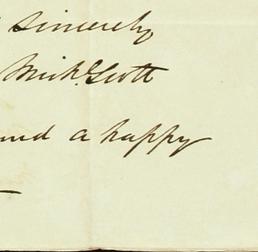 sincerely
Mich. Scott
and a happy